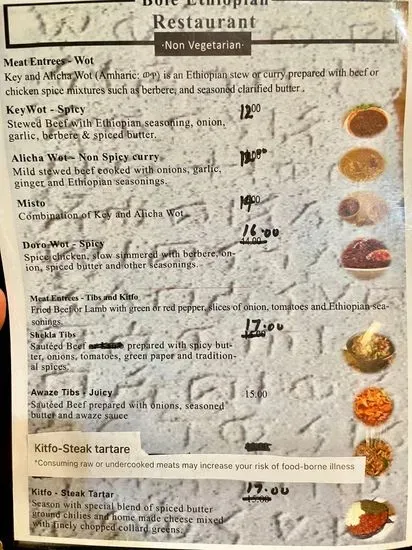 Bole Ethiopian
Restaurant
·Non Vegetarian·
Meat Entrees - Wot
Key and Alicha Wot (Amharic: ወጥ) is an Ethiopian stew or curry prepared with beef or
chicken spice mixtures such as berbere, and seasoned clarified butter .
KeyWot - Spicy 12.00
Stewed Beef with Ethiopian seasoning, onion,
garlic, berbere & spiced butter.
Alicha Wot– Non Spicy curry
Mild stewed beef cooked with onions, garlic,
ginger and Ethiopian seasonings.
Misto
Combination of Key and Alicha Wot
16.00
Doro Wot - Spicy 14.00
Spice chicken, slow simmered with berbere, on-
ion, spiced butter and other seasonings.
Meat Entrees - Tibs and Kitfo
Fried Beef or Lamb with green or red pepper, slices of onion, tomatoes and Ethiopian sea-
sonings.
17.00
Shekla Tibs
Sautéed Beef prepared with spicy but-
ter, onions, tomatoes, green paper and tradition-
al spices.
Awaze Tibs - Juicy 15.00
Sautéed Beef prepared with onions, seasoned
butter and awaze sauce
Kitfo-Steak tartare
*Consuming raw or undercooked meats may increase your risk of food-borne illness
17.00
Kitfo - Steak Tartar 15.00
Season with special blend of spiced butter
ground chilies and home made cheese mixed
with finely chopped collard greens.